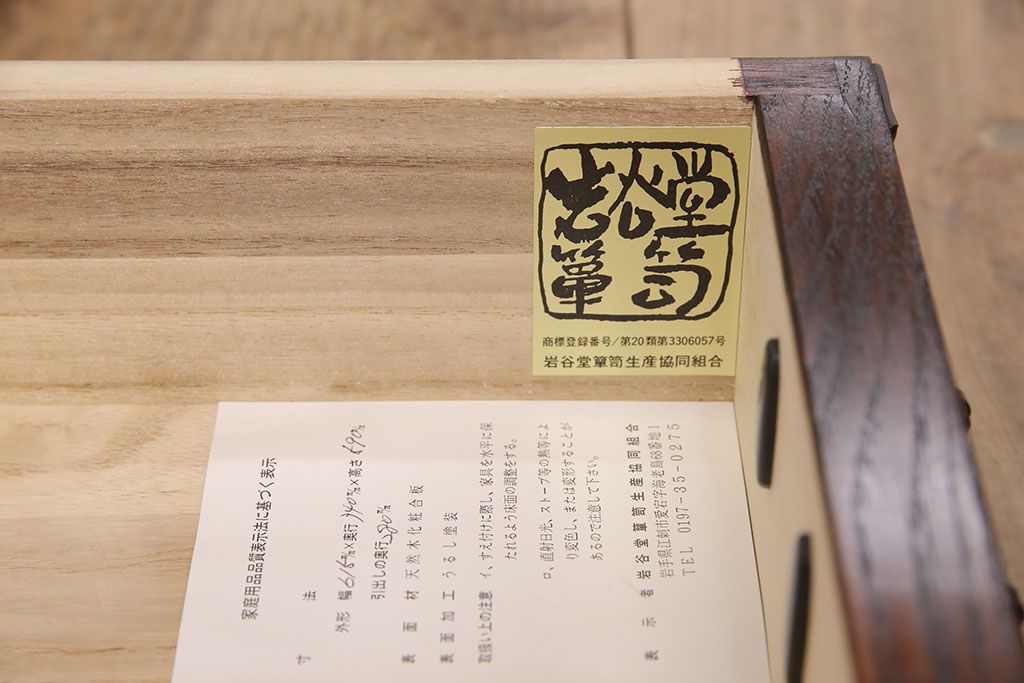 岩谷堂
簞笥
商標登録番号/第20類第3306057号
岩谷堂簞笥生産協同組合
家庭用品品質表示法に基づく表示
寸法
外形 幅 615㎜×奥行340㎜×高さ690㎜
引出しの奥行280㎜
表面材 天然木化粧合板
表面加工 うるし塗装
取扱い上の注意 イ、すえ付けに際し、家具を水平に保
たれるよう床面の調整をする。
ロ、直射日光、ストーブ等の熱等によ
り変色し、または変形することが
あるので注意して下さい。
表示者 岩谷堂簞笥生産協同組合
岩手県江刺市愛宕字海老島68番地1
TEL 0197-35-0275